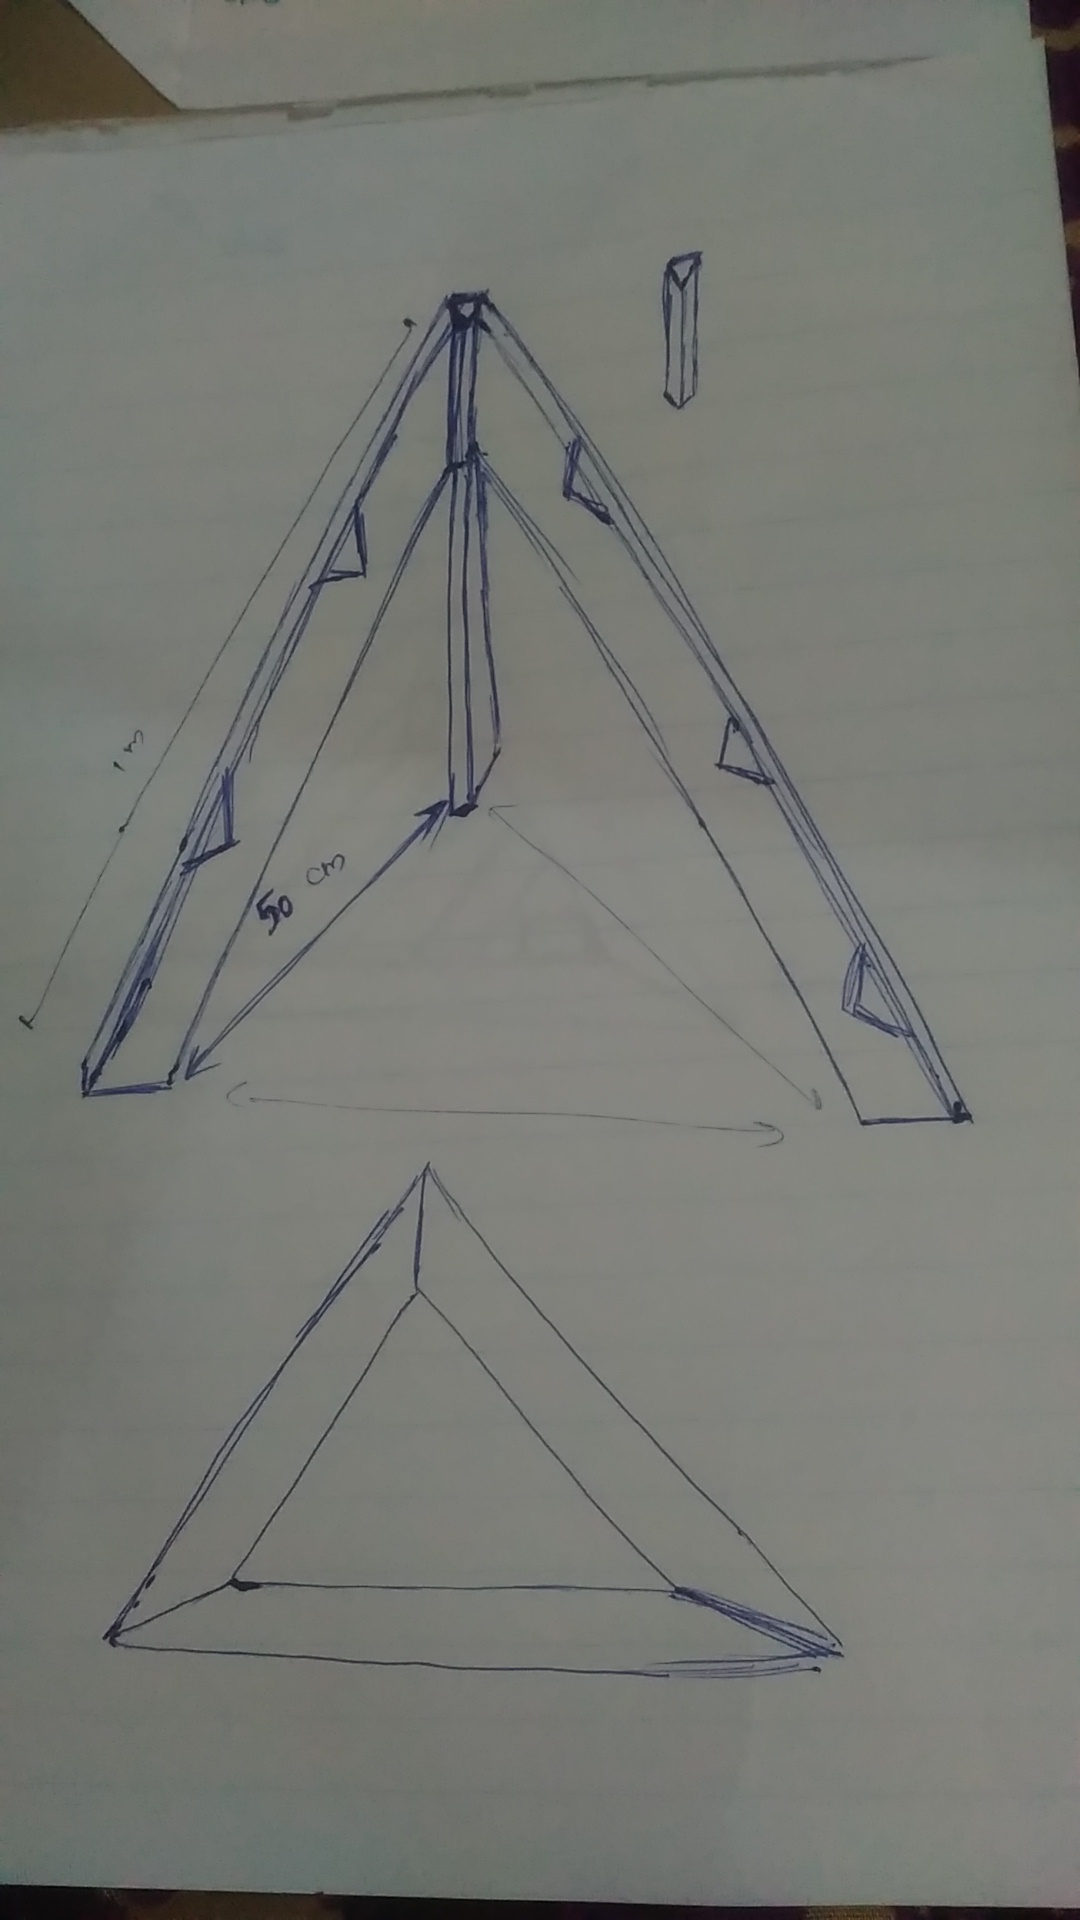 1 m
50 cm